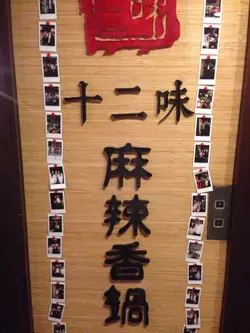 十二味
麻
辣
香
鍋